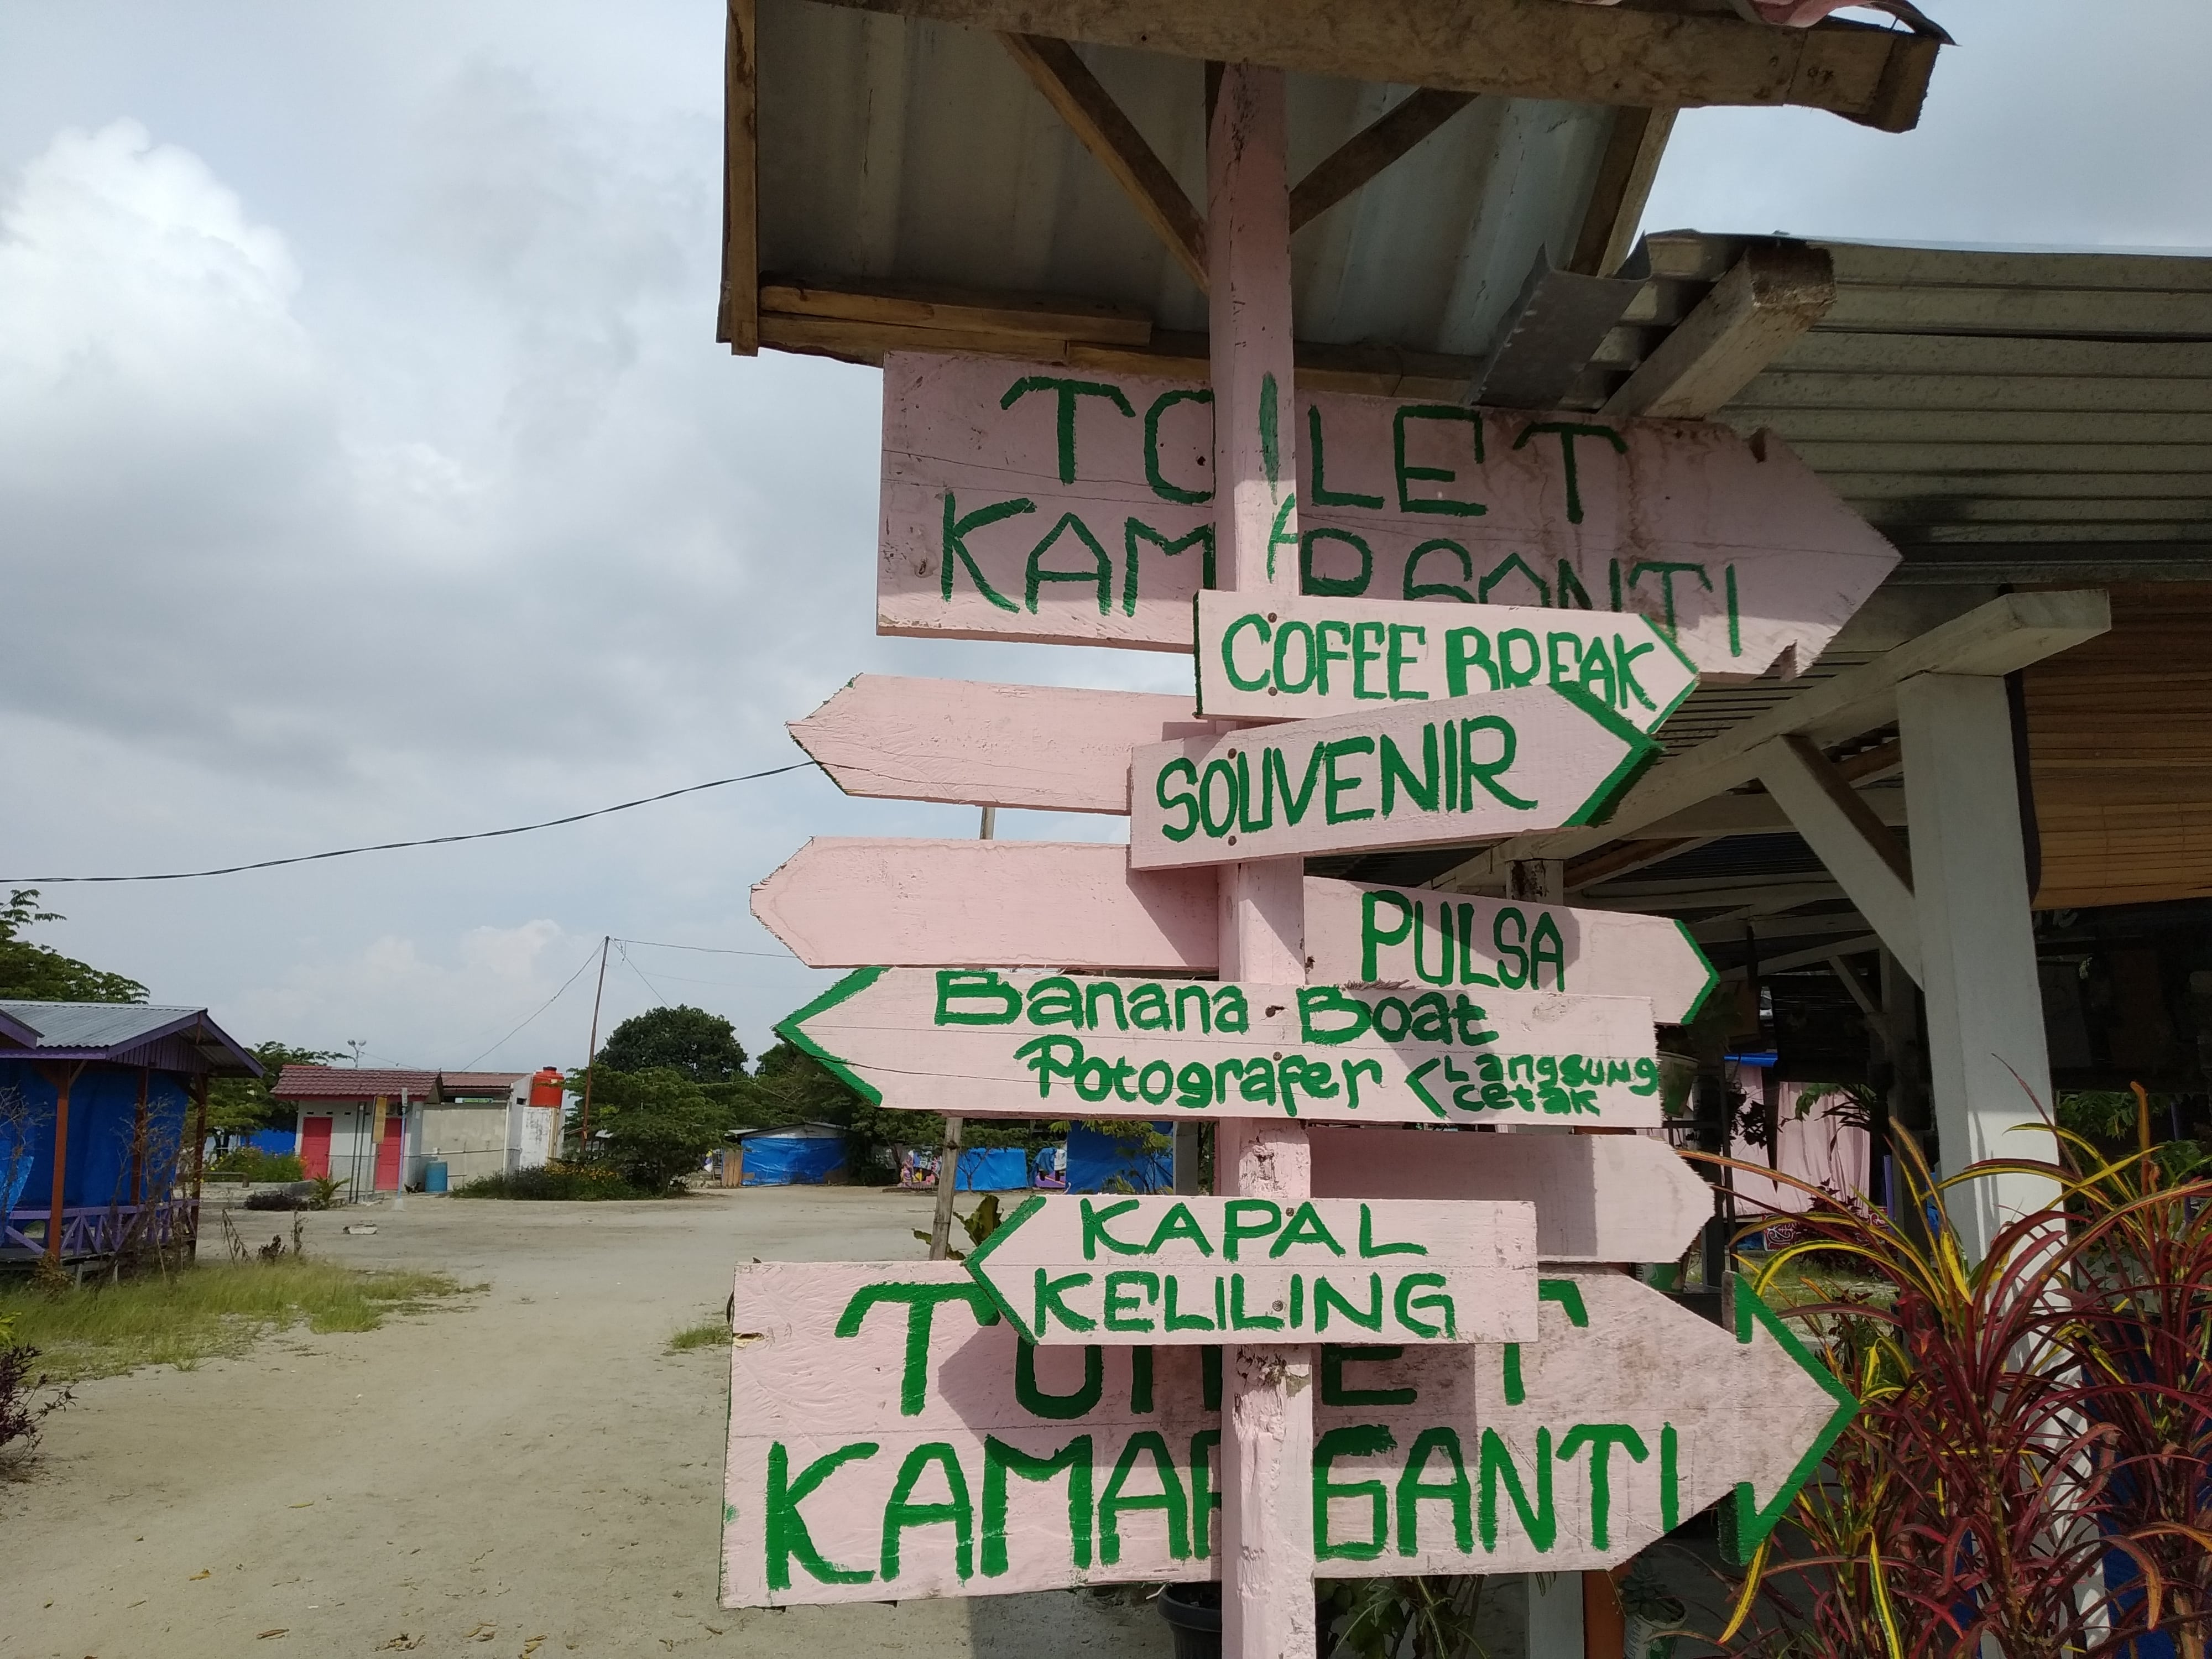 TOILET
KAMAR GANTI
COFEE BREAK
SOUVENIR
PULSA
Banana Boat
Potografer < Langsung
Cetak
KAPAL
KELILING
TOILET
KAMAR GANTI